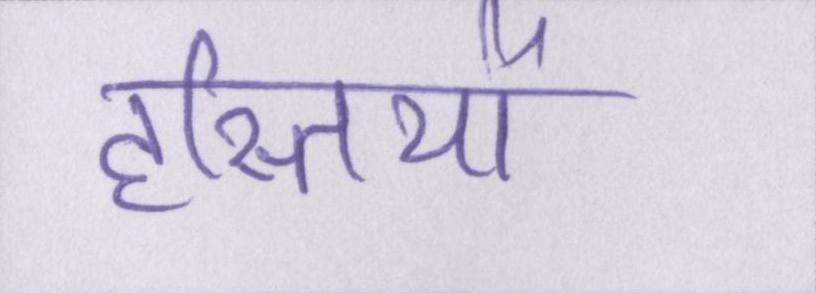 हस्तियों